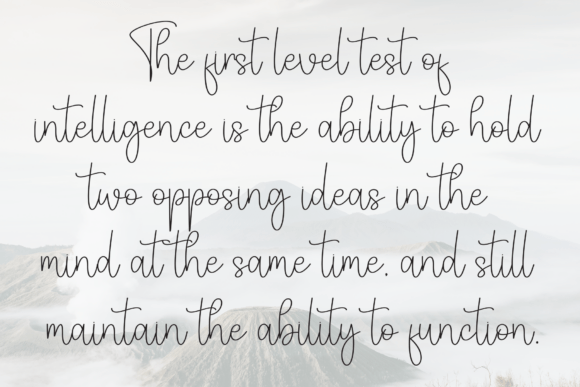 The first level test of
intelligence is the ability to hold
two opposing ideas in the
mind at the same time. and still
maintain the ability to function.